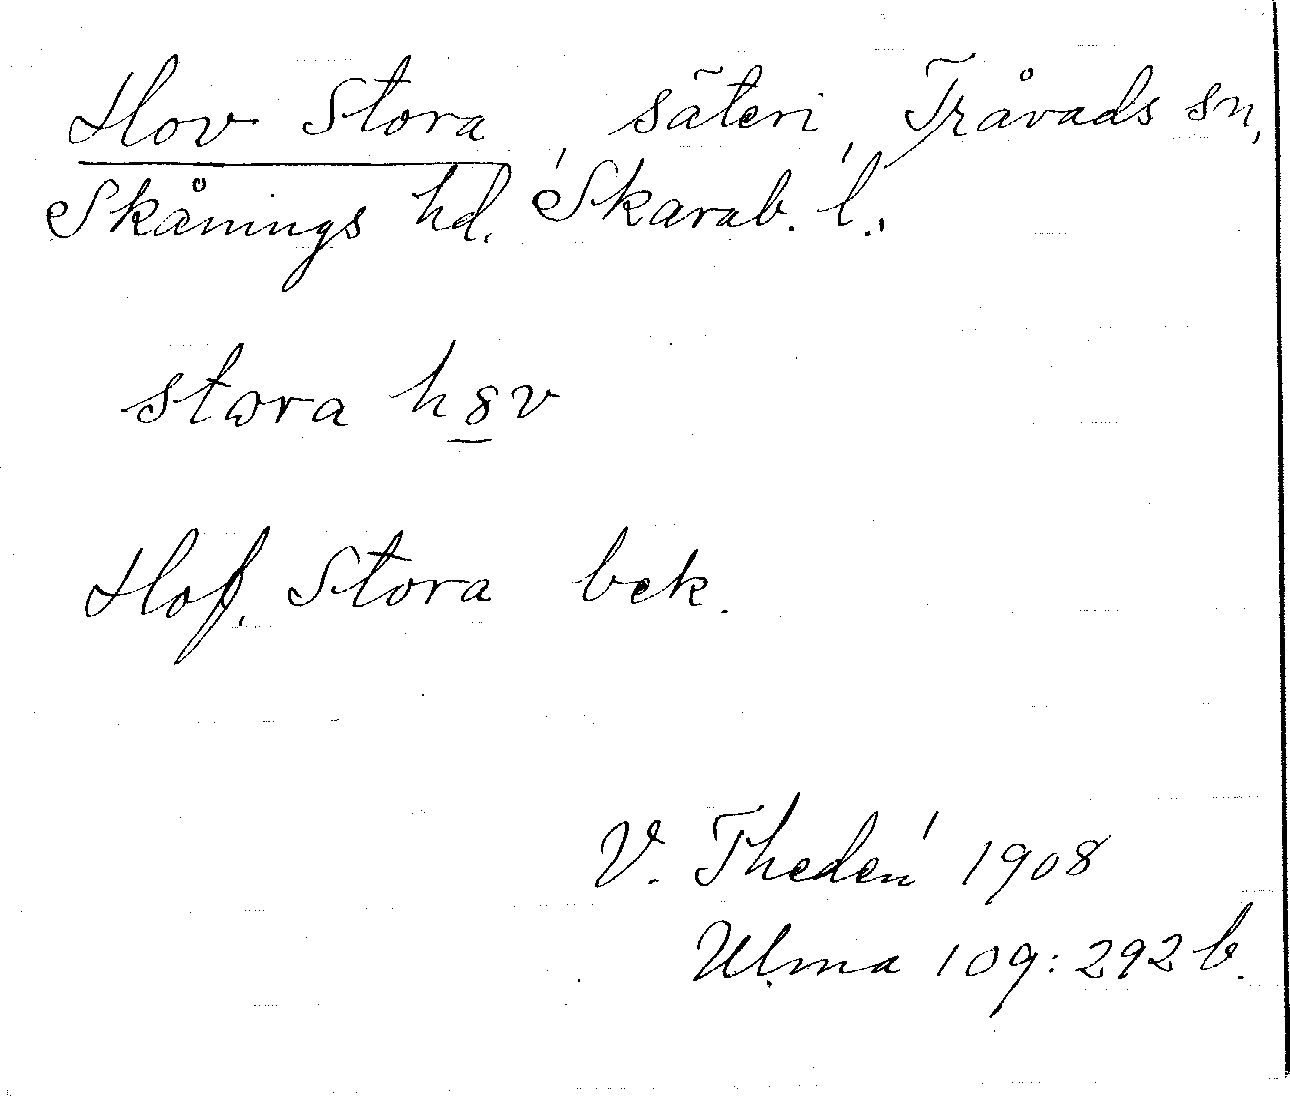 Hov Stora, säteri, Tråvads sn,
Skånings hd. Skarab. l.,
stωra h8v
Hof, Stora bek.
V. Thedén 1908
Ulma 109:292 b.